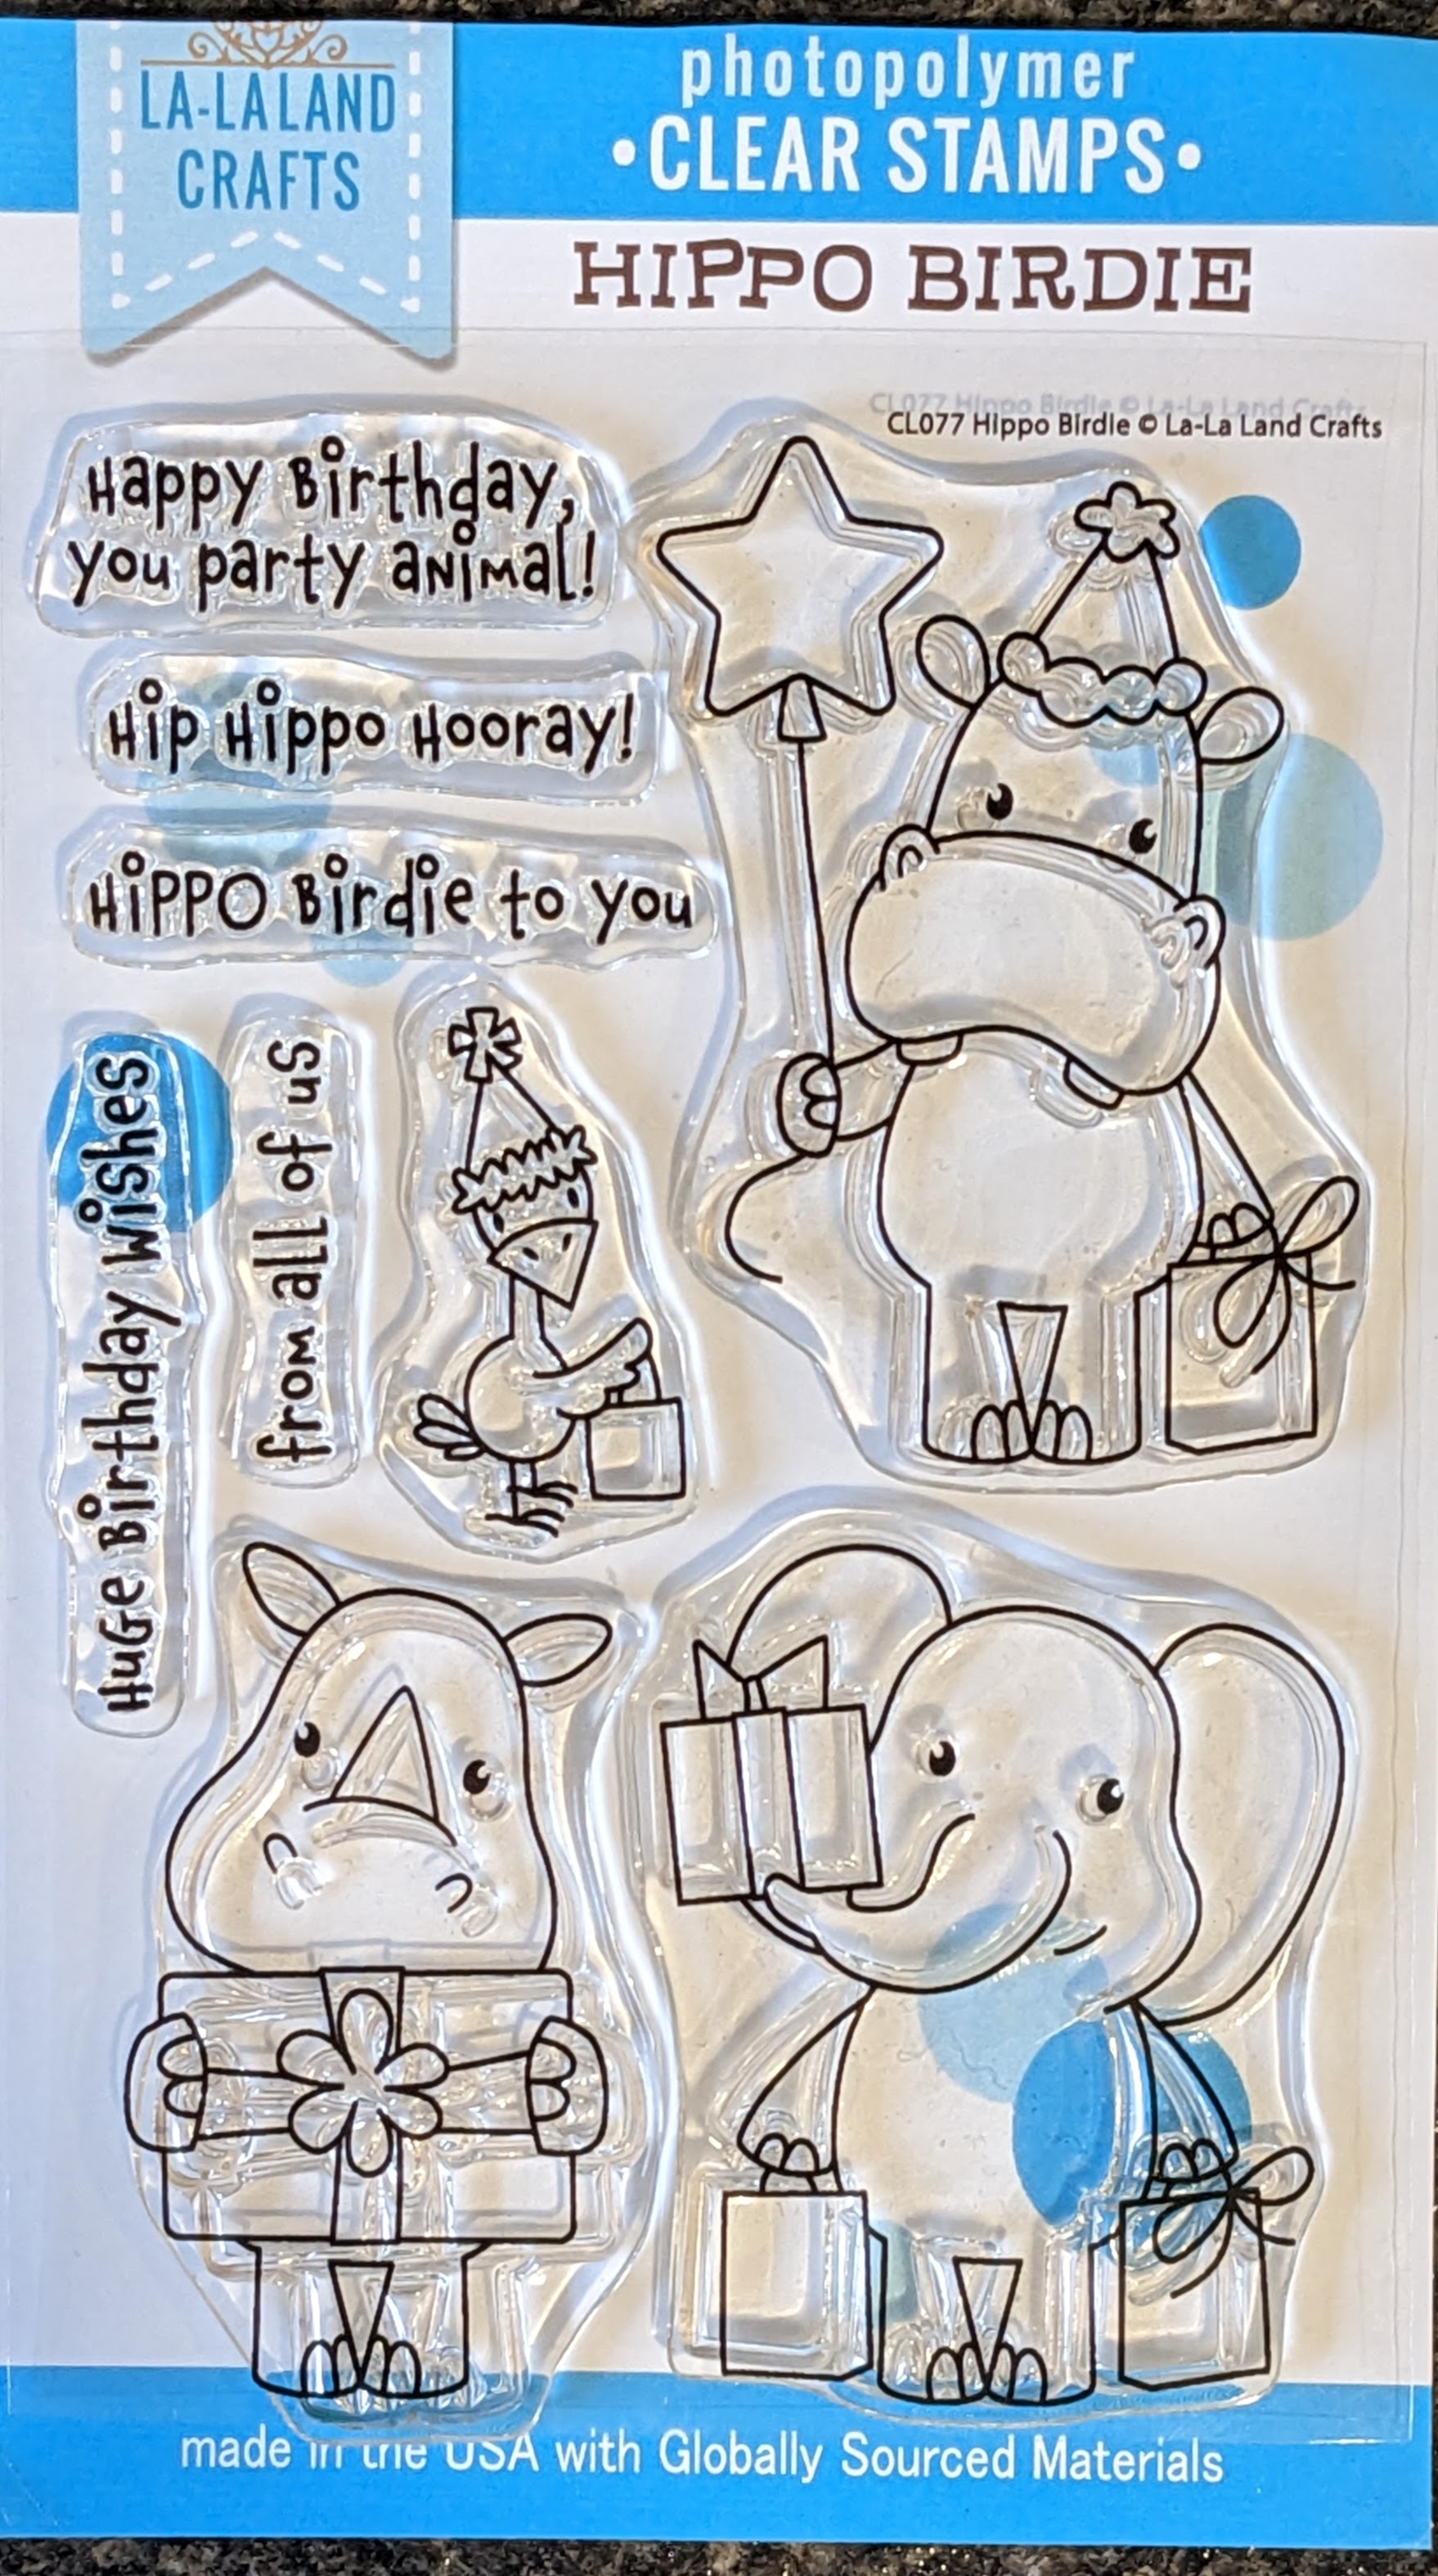 LA-LA LAND
CRAFTS
photopolymer
•CLEAR STAMPS•
HIPPO BIRDIE
CL077 Hippo Birdie © La-La Land Crafts
Happy Birthday,
you party animal!
Hip Hippo Hooray!
HiPPO Birdie to you
Huge Birthday Wishes
from all of us
made in the USA with Globally Sourced Materials